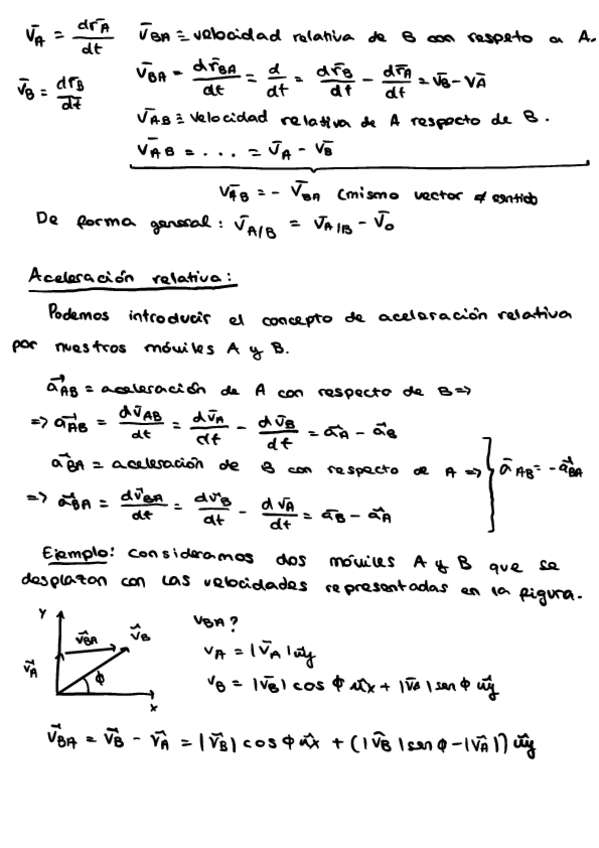 v̄A = dr̄A/dt   v̄BA ≡ velocidad relativa de B con respeto a A.
v̄B = dr̄B/dt   v̄BA = dr̄BA/dt = d/dt = dr̄B/dt - dr̄A/dt = v̄B - v̄A
v̄AB ≡ velocidad relativa de A respecto de B.
v̄AB = ... = v̄A - v̄B
v̄AB = - v̄BA (mismo vector ≠ sentido
De forma general: v̄A/B = v̄A/B - v̄o
Aceleración relativa:
Podemos introducir el concepto de aceleración relativa
por nuestros móviles A y B.
a⃗AB = aceleración de A con respecto de B =>
=> a⃗AB = dv̄AB/dt = dv̄A/dt - dv̄B/dt = a⃗A - a⃗B
a⃗BA = aceleración de B con respecto de A =>   āAB = - a⃗BA
=> a⃗BA = dv⃗BA/dt = dv⃗B/dt - dv̄A/dt = a⃗B - a⃗A
Ejemplo: consideramos dos móviles A y B que se
desplazan con las velocidades representadas en la figura.
Y   v⃗BA   v⃗B   v⃗A   ϕ   x
vBA?
vA = |v̄A| u⃗y
vB = |v̄B| cos ϕ u⃗x + |v̄B| sen ϕ u⃗y
v⃗BA = v⃗B - v⃗A = |v⃗B| cos ϕ u⃗x + (|v⃗B| sen ϕ - |v⃗A|) u⃗y